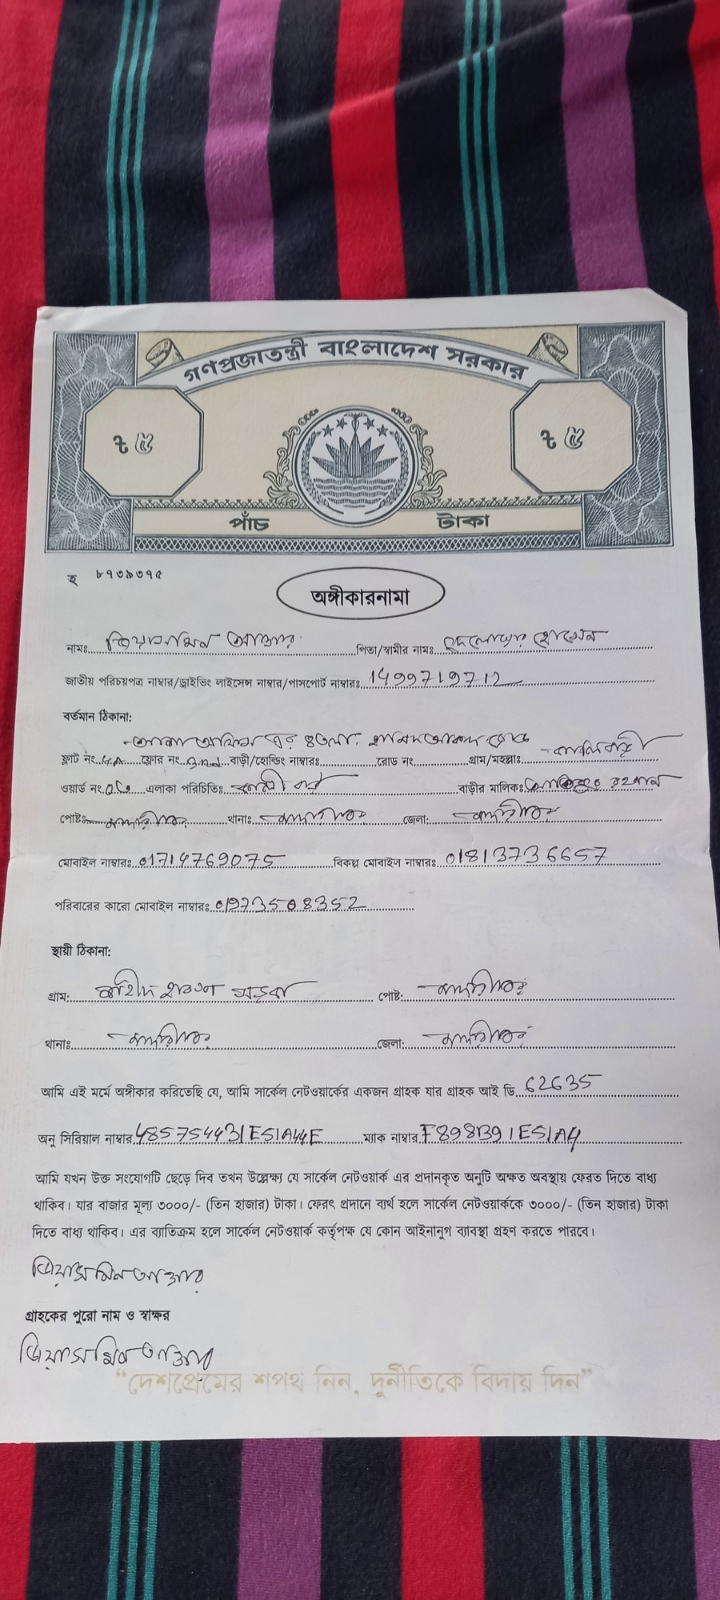 গণপ্রজাতন্ত্রী বাংলাদেশ সরকার
৳ ৫ ৳ ৫
পাঁচ টাকা
হ ৮৭৩৯৩৭৫
অঙ্গীকারনামা
নামঃ আক্তার পিতা/স্বামীর নামঃ দেলোয়ার হোসেন
জাতীয় পরিচয়পত্র নাম্বার/ড্রাইভিং লাইসেন্স নাম্বার/পাসপোর্ট নাম্বারঃ 1499719712
বর্তমান ঠিকানা:
ফ্লাট নং 4A ফ্লোর নং 3rd বাড়ী/হোল্ডিং নাম্বারঃ রোড নং গ্রাম/মহল্লাঃ
ওয়ার্ড নং এলাকা পরিচিতিঃ বাড়ীর মালিকঃ রহমান
পোষ্টঃ থানাঃ জেলা:
মোবাইল নাম্বারঃ 01714769075 বিকল্প মোবাইল নাম্বারঃ 01813736657
পরিবারের কারো মোবাইল নাম্বারঃ 01973508352
স্থায়ী ঠিকানা:
গ্রাম: সড়ক পোষ্ট:
থানাঃ জেলা:
আমি এই মর্মে অঙ্গীকার করিতেছি যে, আমি সার্কেল নেটওয়ার্কের একজন গ্রাহক যার গ্রাহক আই ডি 62635
অনু সিরিয়াল নাম্বার 485754431E51A44E ম্যাক নাম্বার F898B91E51A4
আমি যখন উক্ত সংযোগটি ছেড়ে দিব তখন উল্লেক্ষ্য যে সার্কেল নেটওয়ার্ক এর প্রদানকৃত অনুটি অক্ষত অবস্থায় ফেরত দিতে বাধ্য
থাকিব। যার বাজার মূল্য ৩০০০/- (তিন হাজার) টাকা। ফেরৎ প্রদানে ব্যর্থ হলে সার্কেল নেটওয়ার্ককে ৩০০০/- (তিন হাজার) টাকা
দিতে বাধ্য থাকিব। এর ব্যতিক্রম হলে সার্কেল নেটওয়ার্ক কর্তৃপক্ষ যে কোন আইনানুগ ব্যাবস্থা গ্রহণ করতে পারবে।
আক্তার
গ্রাহকের পুরো নাম ও স্বাক্ষর
আক্তার
“দেশপ্রেমের শপথ নিন, দুর্নীতিকে বিদায় দিন”